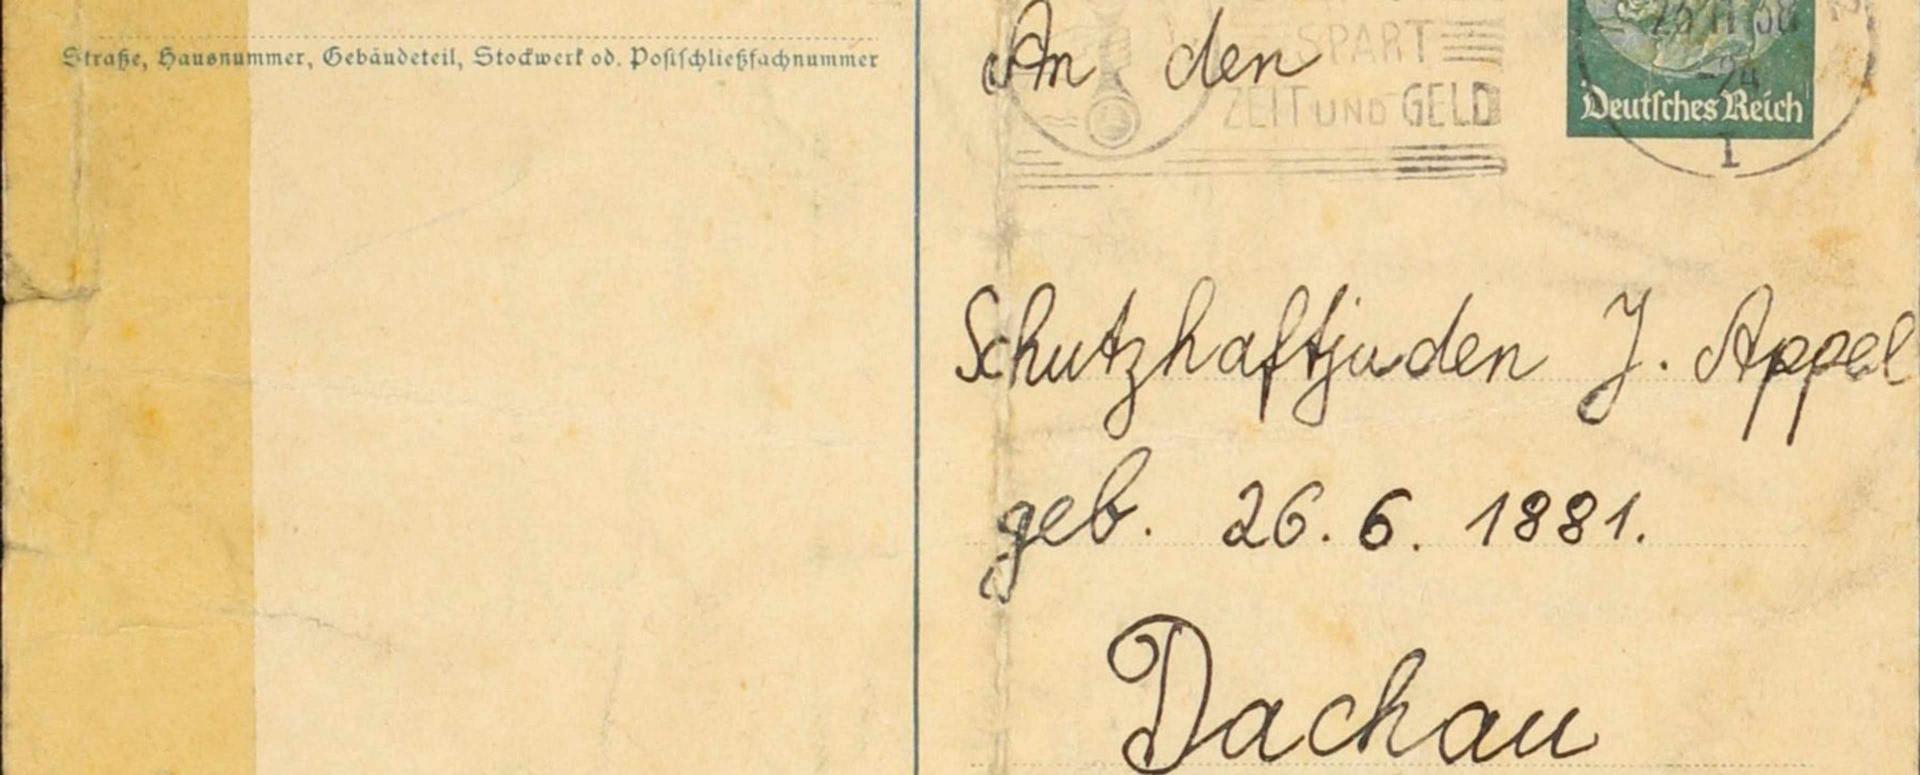 Straße, Hausnummer, Gebäudeteil, Stockwerk od. Postschließfachnummer
An den
SPART
ZEIT UND GELD
24
Deutsches Reich
1
Schutzhaftjuden J. Appel
geb. 26. 6. 1881.
Dachau